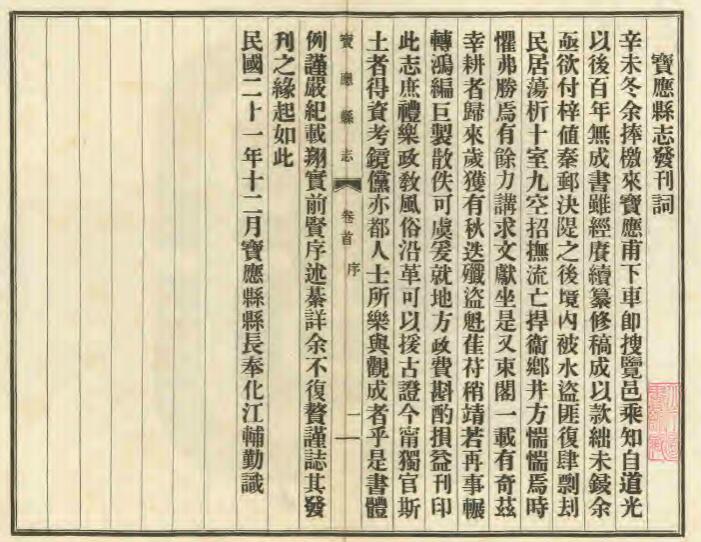 寶應縣志發刊詞
辛未冬余捧檄來寶應甫下車卽搜覽邑乘知自道光
以後百年無成書雖經賡續纂修稿成以款絀未鋟余
亟欲付梓値秦郵決隄之後境內被水盜匪復肆剽刦
民居蕩析十室九空招撫流亡捍衞鄕井方惴惴焉時
懼弗勝焉有餘力講求文獻坐是又束閣一載有奇茲
幸耕者歸來歲獲有秋迭殲盜魁萑苻稍靖若再事輾
轉鴻編巨製散佚可虞爰就地方政費斟酌損益刊印
此志庶禮樂政敎風俗沿革可以援古證今甯獨官斯
寶應縣志
卷首 序
一
土者得資考鏡儻亦都人士所樂與觀成者乎是書體
例謹嚴紀載翔實前賢序述綦詳余不復贅謹誌其發
刊之緣起如此
民國二十一年十二月寶應縣縣長奉化江輔勤識